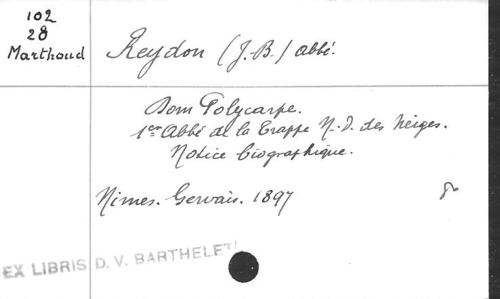 102
28
Marthaud
Reydon (J.-B.) abbé.
Dom Polycarpe.
1er Abbé de la Trappe N.-D. des Neiges.
Notice biographique.
Nimes. Gervais. 1897
EX LIBRIS D. V. BARTHELET